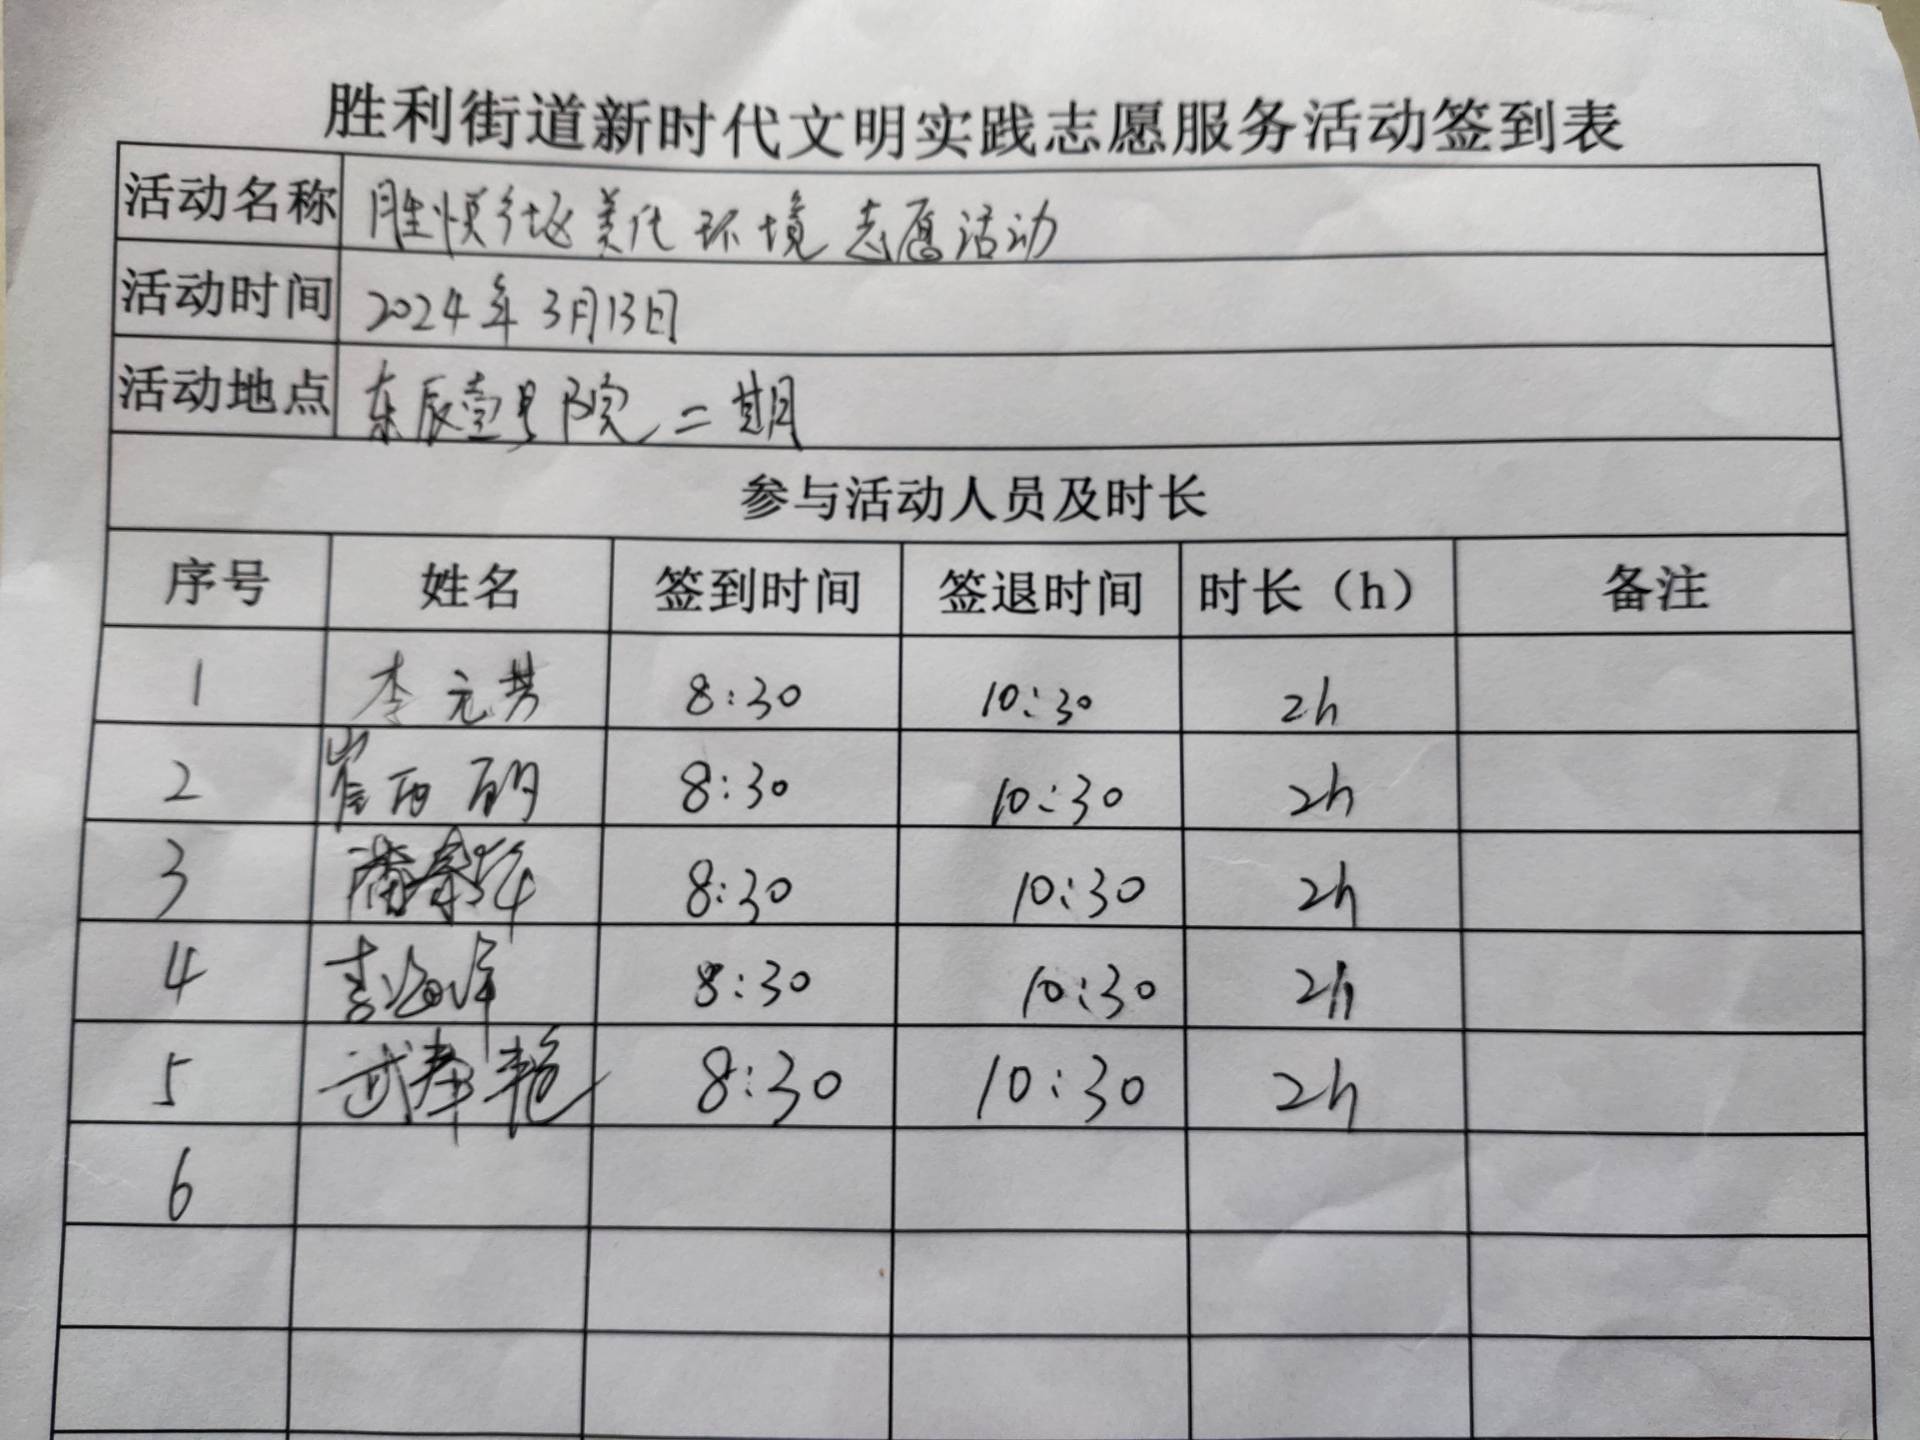 胜利街道新时代文明实践志愿服务活动签到表
活动名称 胜悦社区美化环境志愿活动
活动时间 2024年3月13日
活动地点 东辰壹号院二期
参与活动人员及时长
序号 姓名 签到时间 签退时间 时长（h） 备注
1 李元芳 8:30 10:30 2h
2 崔 8:30 10:30 2h
3 8:30 10:30 2h
4 李海峰 8:30 10:30 2h
5 武春艳 8:30 10:30 2h
6